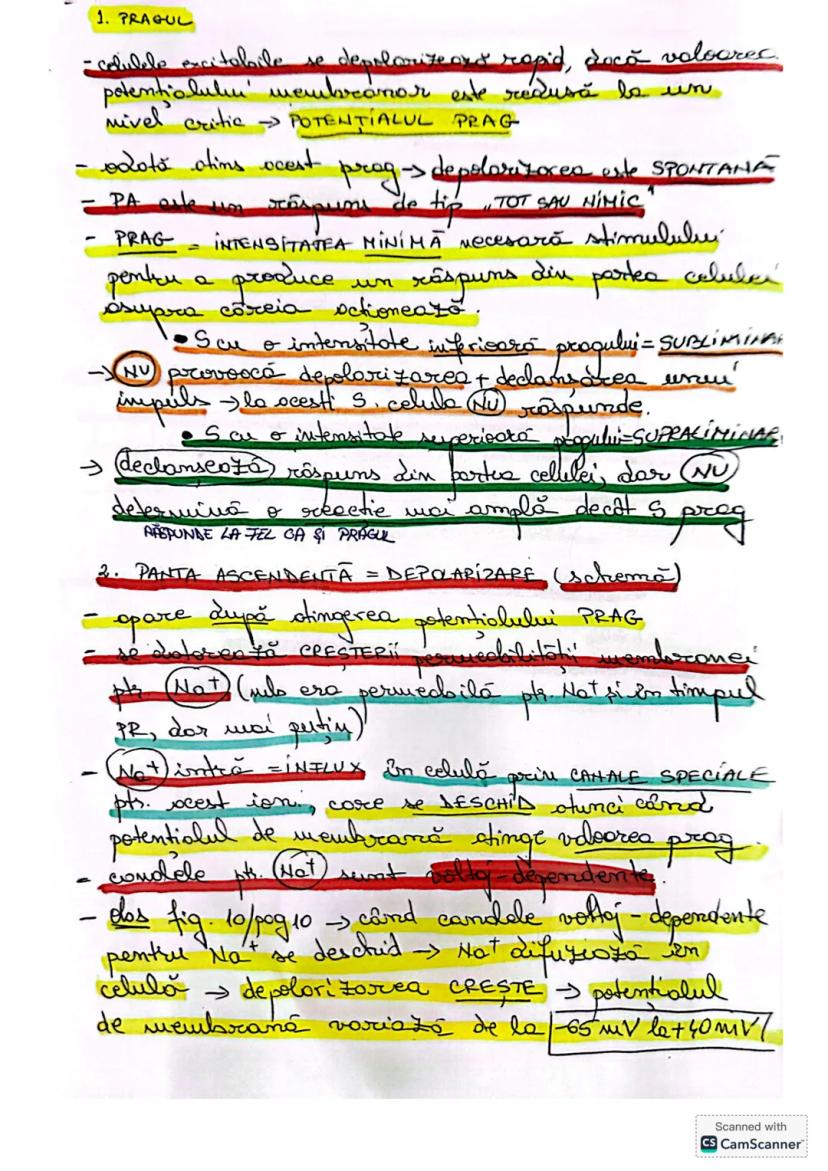 1. PRAGUL
- celulele excitabile se depolarizează rapid, dacă valoarea
potențialului membranar este redusă la un
nivel critic → POTENȚIALUL PRAG
- odată atins acest prag → depolarizarea este SPONTANĂ
- PA este un răspuns de tip „TOT SAU NIMIC"
- PRAG = INTENSITATEA MINIMĂ necesară stimulului
pentru a produce un răspuns din partea celulei
asupra căreia acționează.
• S cu o intensitate inferioară pragului = SUBLIMINAR
→ NU provoacă depolarizarea + declanșarea unui
impuls → la acești S. celula NU răspunde.
• S cu o intensitate superioară pragului = SUPRALIMINAR
→ declanșează răspuns din partea celulei, dar NU
determină o reacție mai amplă decât S prag
RĂSPUNDE LA FEL CA ȘI PRAGUL
2. PANTA ASCENDENTĂ = DEPOLARIZARE (schemă)
- apare după atingerea potențialului PRAG
- se datorează CREȘTERII permeabilității membranei
ptr. Na⁺ (mb era permeabilă ptr. Na⁺ și în timpul
PR, dar mai puțin)
- Na⁺ intră = INFLUX în celulă prin CANALE SPECIALE
ptr. acest ion, care se DESCHID atunci când
potențialul de membrană atinge valoarea prag.
- canalele ptr. Na⁺ sunt voltaj-dependente!
- obs fig. 10/pag 10 → când canalele voltaj-dependente
pentru Na⁺ se deschid → Na⁺ difuzează în
celulă → depolarizarea CREȘTE → potențialul
de membrană variază de la -65 mV la +40 mV!
Scanned with
CS CamScanner